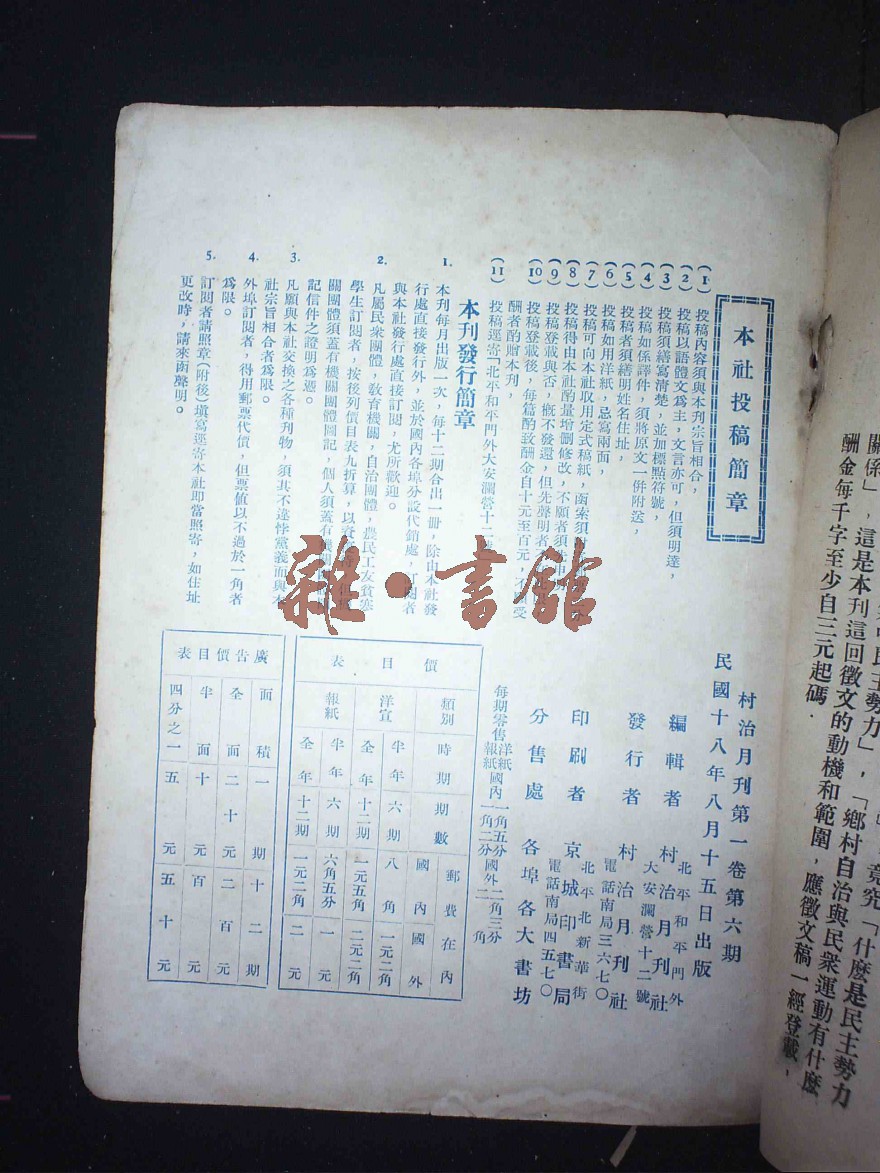 關係」，這是本刊這回徵文的動機和範圍，應徵文稿一經登載，
酬金每千字至少自三元起碼．
本社投稿簡章
(1) 投稿內容須與本刊宗旨相合，
(2) 投稿以語體文爲主，文言亦可，但須明達，
(3) 投稿須繕寫清楚，並加標點符號，
(4) 投稿如係譯件，須將原文一併附送，
(5) 投稿者須繕明姓名住址，
(6) 投稿如用洋紙，忌寫兩面，
(7) 投稿可向本社取用定式稿紙，函索須
(8) 投稿得由本社酌量增刪修改，不願者須
(9) 投稿登載與否，槪不發還，但先聲明者
(10) 投稿登載後，每篇酌致酬金自十元至百元，不 受
酬者酌贈本刊，
(11) 投稿逕寄「北平和平門外大安瀾營十二
本刊發行簡章
1. 本刊每月出版一次，每十二期合出一冊，除由本社發
行處直接發行外，並於國內各埠分設代銷處，訂閱者
與本社發行處直接訂閱，尤所歡迎。
2. 凡屬民衆團體，敎育機關，自治團體，農民工友貧寒
學生訂閱者，按後列價目表九折算，以
關團體須蓋有機關團體圖記，個人須蓋有
記信件之證明爲憑。
3. 凡願與本社交換之各種刊物，須其不違悖黨義而與本
社宗旨相合者爲限。
4. 外埠訂閱者，得用郵票代價，但票値以不過於一角者
爲限。
5. 訂閱者請照章（附後）塡寫逕寄本社卽當照寄，如住址
更改時，請來函聲明。
雜·書館
村治月刊第一卷第六期
民國十八年八月十五日出版
編輯者 村治月刊社
北平和平門外
大安瀾營十二號
發行者 村治月刊社
電話南局三六七〇
印刷者 京城印書局
北平北新華街
電話南局四五七〇
分售處 各埠各大書坊
每期零售洋紙國內一角五分國外二角三分
報紙 一角二分 二角
價目表
類別 時期 期數 郵費在內 國內 國外
洋宣 半年 六期 八角 一元二角
全年 十二期 一元五角 二元二角
報紙 半年 六期 六角五分 一元
全年 十二期 一元二角 二元
廣告價目表
面積 一期 十二期
全面 二十元 二百元
半面 十元 百元
四分之一 五元 五十元